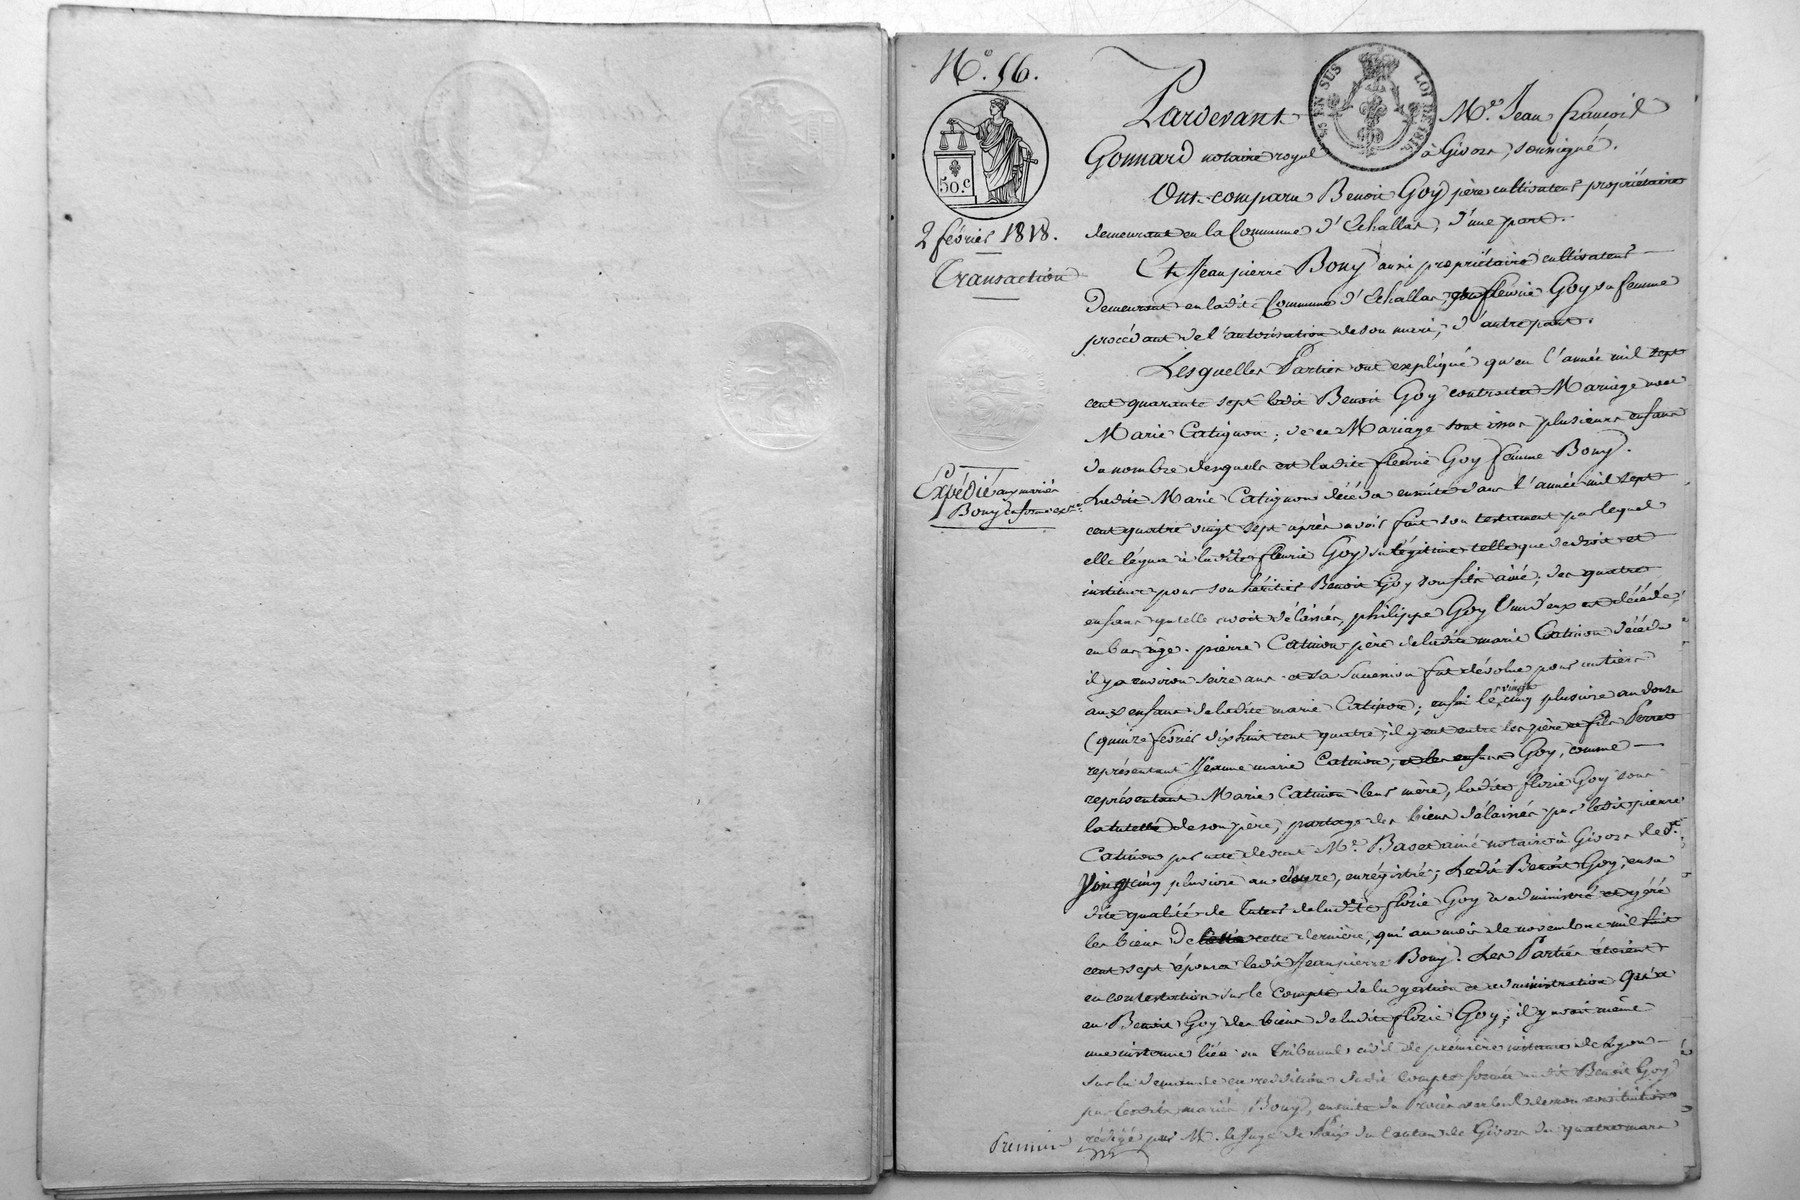 N.º 56.
50.c
2 février 1818.
Transaction
Expédié aux mariés
Bouy en forme
EN SUS
LOI DE 1816
Pardevant M.e Jean François
Gonnard notaire royal à Givors, soussigné.
Ont comparu Benoit Goy père cultivateur propriétaire
demeurant en la Commune d'Echallas, d'une part.
Et Jean pierre Bouy aussi propriétaire cultivateur
demeurant en ladite Commune d'Echallas, fleurie Goy sa femme
procédant de l'autorisation de son mari, d'autre part.
Lesquelles Parties ont expliqué qu'en l'année mil sept
cent quarante sept ledit Benoit Goy contracta Mariage avec
Marie Catignon; de ce Mariage sont issus plusieurs enfans
du nombre desquels est ladite fleurie Goy femme Bouy.
Ladite Marie Catignon décéda ensuite dans l'année mil sept
cent quatre vingt sept après avoir fait son testament par lequel
elle légua à ladite fleurie Goy sa légitime telle que de droit et
institua pour son héritier Benoit Goy son fils ainé; des quatre
enfans qu'elle avoit délaissés, philippe Goy l'un d'eux est décédé
en bas âge. pierre Catinon père de ladite marie Catinon décéda
il y a environ seize ans et sa Succession fut dévolue pour un tiers
aux enfans de ladite marie Catinon; enfin le vingt cinq pluviose an douze
(quinze février dix huit cent quatre, il y eut entre les père et fils Perret
représentant Jeanne marie Catinon, et les enfans Goy, comme
représentant Marie Catinon leur mère, ladite florie Goy sous
la tutelle de son père, partage des biens délaissés par ledit pierre
Catinon par acte devant M.e Basset ainé notaire à Givors led.t
vingt cinq pluviose an douze, enrégistré; Ledit Benoit Goy, en sa
dite qualité de tuteur de ladite florie Goy a administré et géré
les biens de cette dernière, qui au mois de novembre mil huit
cent sept épousa ledit Jean pierre Bouy. Les Parties étoient
en contestation sur le compte de la gestion et administration qu'a
eu Benoit Goy des biens de ladite florie Goy; il y avoit même
une instance liée au Tribunal civil de première instance de Lyon
sur la demande en reddition dudit compte formée audit Benoit Goy
par lesdits mariés Bouy, ensuite du Procès verbal de non conciliation
rédigé par M. le Juge de Paix du Canton de Givors du quatre mars
Premier